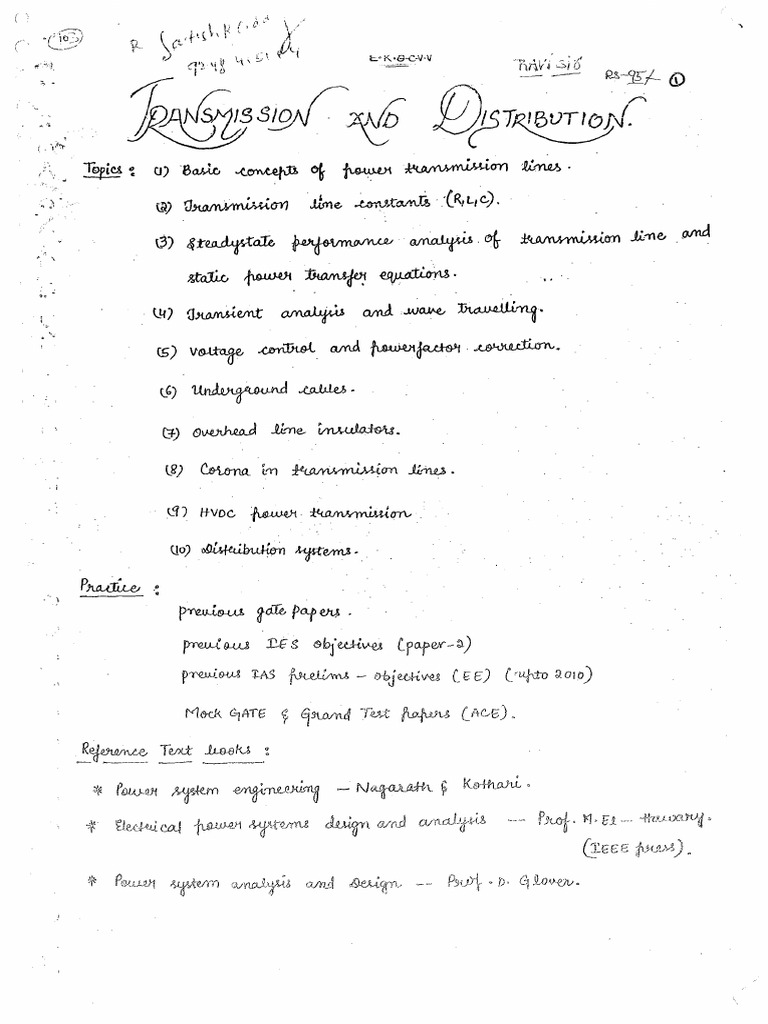 103
R Satish Reddy
9248 4151
E.K.O.C.V.V
RAVISIO
RS-95/- 1
TRANSMISSION AND DISTRIBUTION.
Topics: (1) Basic concepts of power transmission lines.
(2) Transmission line constants (R,L,C).
(3) Steadystate performance analysis of transmission line and
static power transfer equations.
(4) Transient analysis and wave travelling.
(5) Voltage control and powerfactor correction.
(6) Underground cables.
(7) Overhead line insulators.
(8) Corona in transmission lines.
(9) HVDC power transmission
(10) Distribution systems.
Practice:
previous gate papers.
previous IES objectives (paper-2)
previous IAS prelims - objectives (EE) (upto 2010)
Mock GATE & Grand Test papers (ACE).
Reference Text books:
* Power system engineering - Nagarath & Kothari.
* Electrical power systems design and analysis -- Prof. M. El -- Hawary.
(IEEE press).
* Power system analysis and Design -- Prof. D. Glover.